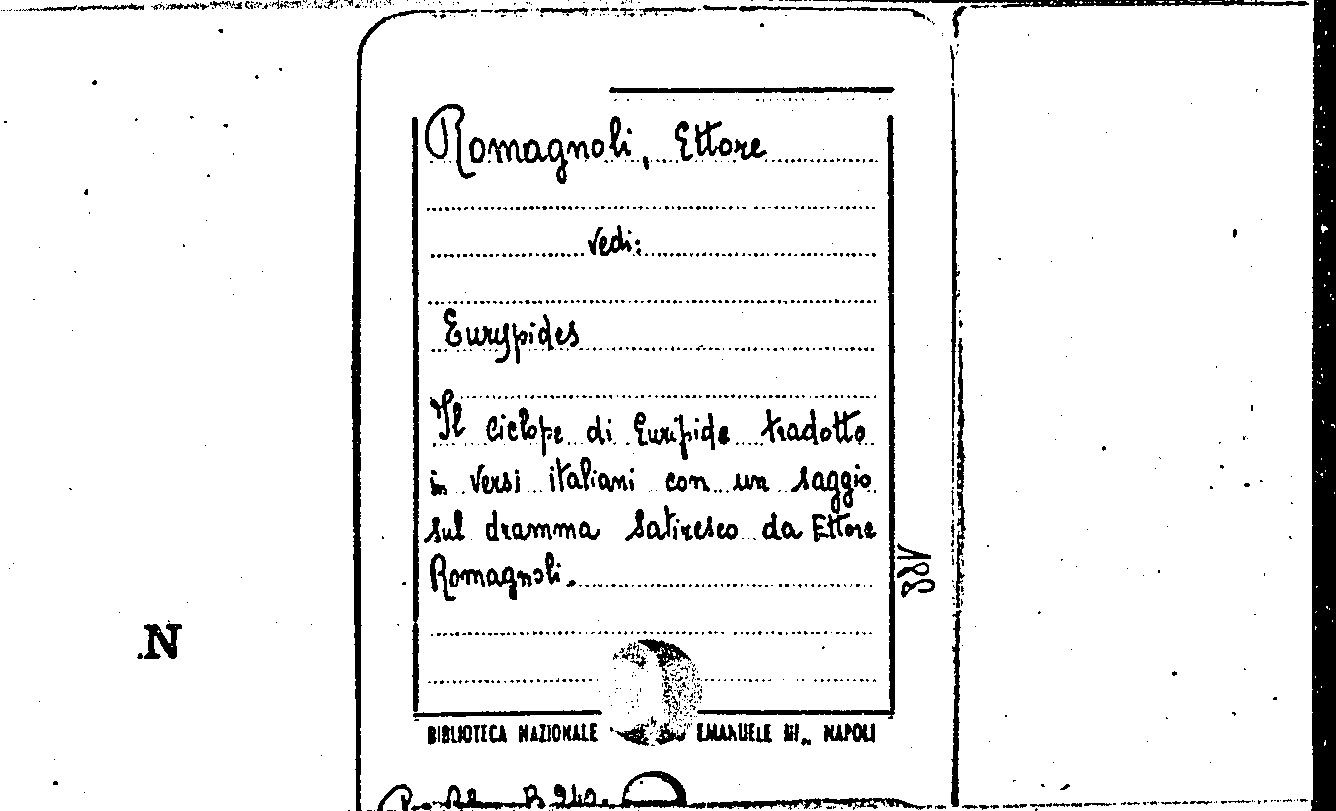 Romagnoli, Ettore
vedi:
Eurypides
Il ciclope di Euripide tradotto
in versi italiani con un saggio
sul dramma satiresco da Ettore
Romagnoli.
N
BIBLIOTECA NAZIONALE EMANUELE III„ NAPOLI